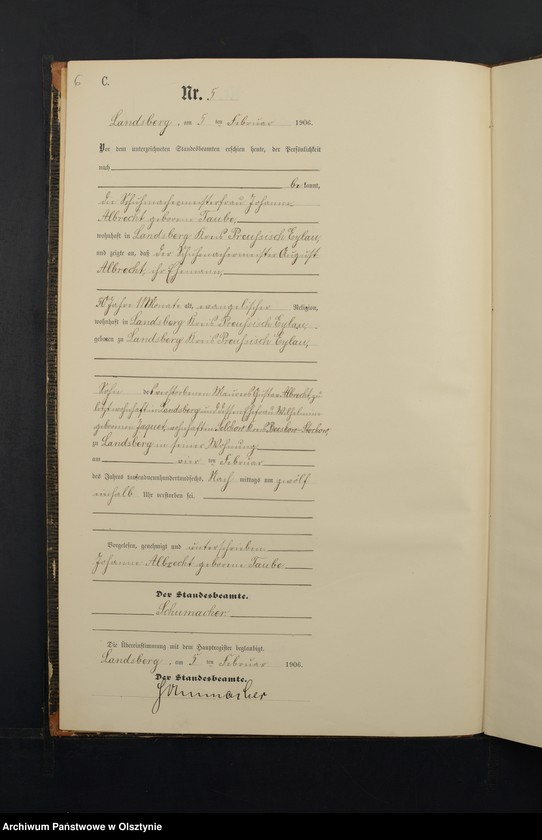 6
C.
Nr. 5
Landsberg, am 5 ten Februar 1906.
Vor dem unterzeichneten Standesbeamten erschien heute, der Persönlichkeit
nach
be kannt,
die Schuhmachermeisterfrau Johanne
Albrecht geborene Taube,
wohnhaft in Landsberg Kreis Preußisch Eylau,
und zeigte an, daß der Schuhmachermeister August
Albrecht, ihr Ehemann,
50 Jahre 11 Monate alt, evangelischer Religion,
wohnhaft in Landsberg Kreis Preußisch Eylau,
geboren zu Landsberg Kreis Preußisch Eylau,
Sohn des verstorbenen Maurers Gustav Albrecht, zu
letzt wohnhaft in Landsberg und dessen Ehefrau Wilhelmine
geborenen Jaquet, wohnhaft in Selchow Kreis Beeskow-Storkow,
zu Landsberg in seiner Wohnung
am vier ten Februar
des Jahres tausendneunhundertundsechs, Nach mittags um zwölf
einhalb Uhr verstorben sei.
Vorgelesen, genehmigt und unterschrieben
Johanne Albrecht geborene Taube
Der Standesbeamte.
Schumacher
Die Übereinstimmung mit dem Hauptregister beglaubigt.
Landsberg, am 5 ten Februar 1906.
Der Standesbeamte.
Schumacher
Archiwum Państwowe w Olsztynie